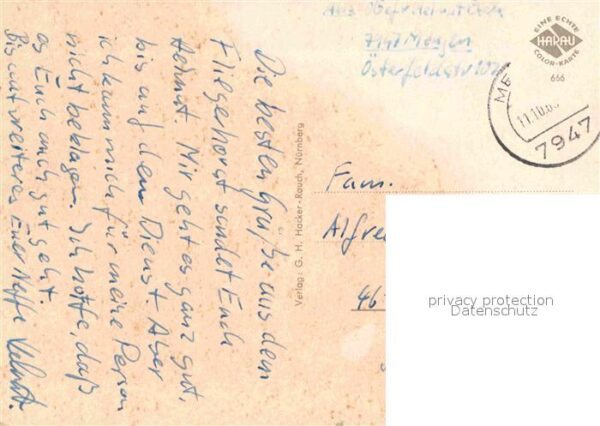 Die besten Grüße aus dem
Fliegerhorst sendet Euch
Helmut. Mir geht es ganz gut,
bis auf den Dienst. Aber
ich kann mich für meine Person
nicht beklagen. Ich hoffe, daß
es Euch auch gut geht.
Bis auf weiteres Euer Neffe Helmut.
Verlag: G. H. Hacker-Rauch, Nürnberg
7947 Mengen
EINE ECHTE
HARAU
COLOR-KARTE
666
ME
11.10.6
7947
Fam.
Alfre
46
privacy protection
Datenschutz